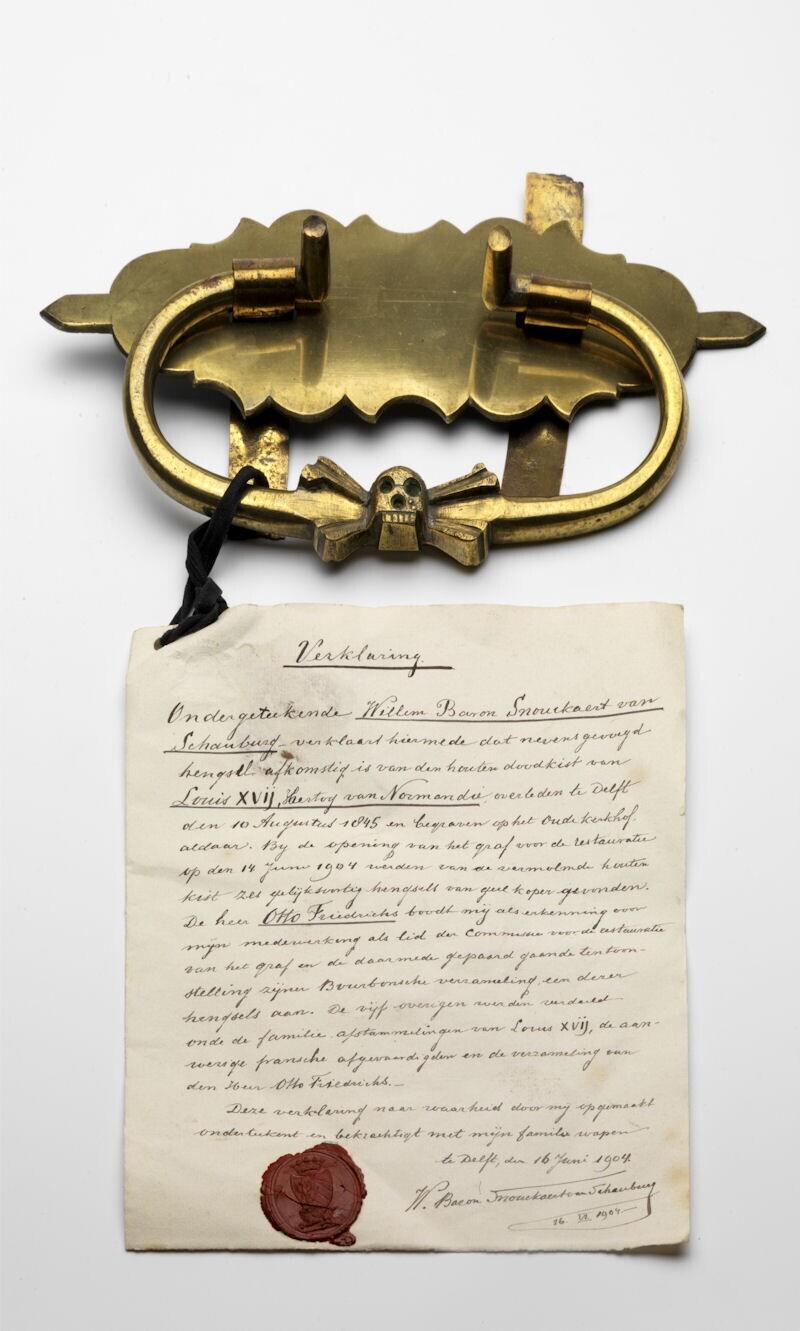 Verklaring.
Ondergeteekende Willem Baron Snouckaert van
Schauburg verklaart hiermede dat nevensgevoegd
hengsel afkomstig is van den houten doodkist van
Louis XVIJ, Hertog van Normandië, overleden te Delft
den 10 Augustus 1845 en begraven op het Oude kerkhof
aldaar. By de opening van het graf voor de restauratie
op den 14 Juni 1904 werden van de vermolmde houten
kist zes gelijksoortig hengsels van geel koper gevonden.
De heer Otto Friedrichs boodt mij als erkenning voor
mijn medewerking als lid der Commissie voor de restauratie
van het graf en de daarmede gepaard gaande tentoon-
stelling zijner Bourbonsche verzameling, een dezer
hengsels aan. De vijf overigen werden verdeeld
onde de familie afstammelingen van Louis XVIJ, de aan-
wezige fransche afgevaardigden en de verzameling van
den Heer Otto Friedrichs.—
Deze verklaring naar waarheid door mij opgemaakt
onderteekent en bekrachtigt met mijn familie wapen
te Delft, den 16 Juni 1904.
W. Baron Snouckaert van Schauburg
16. VI. 1904.